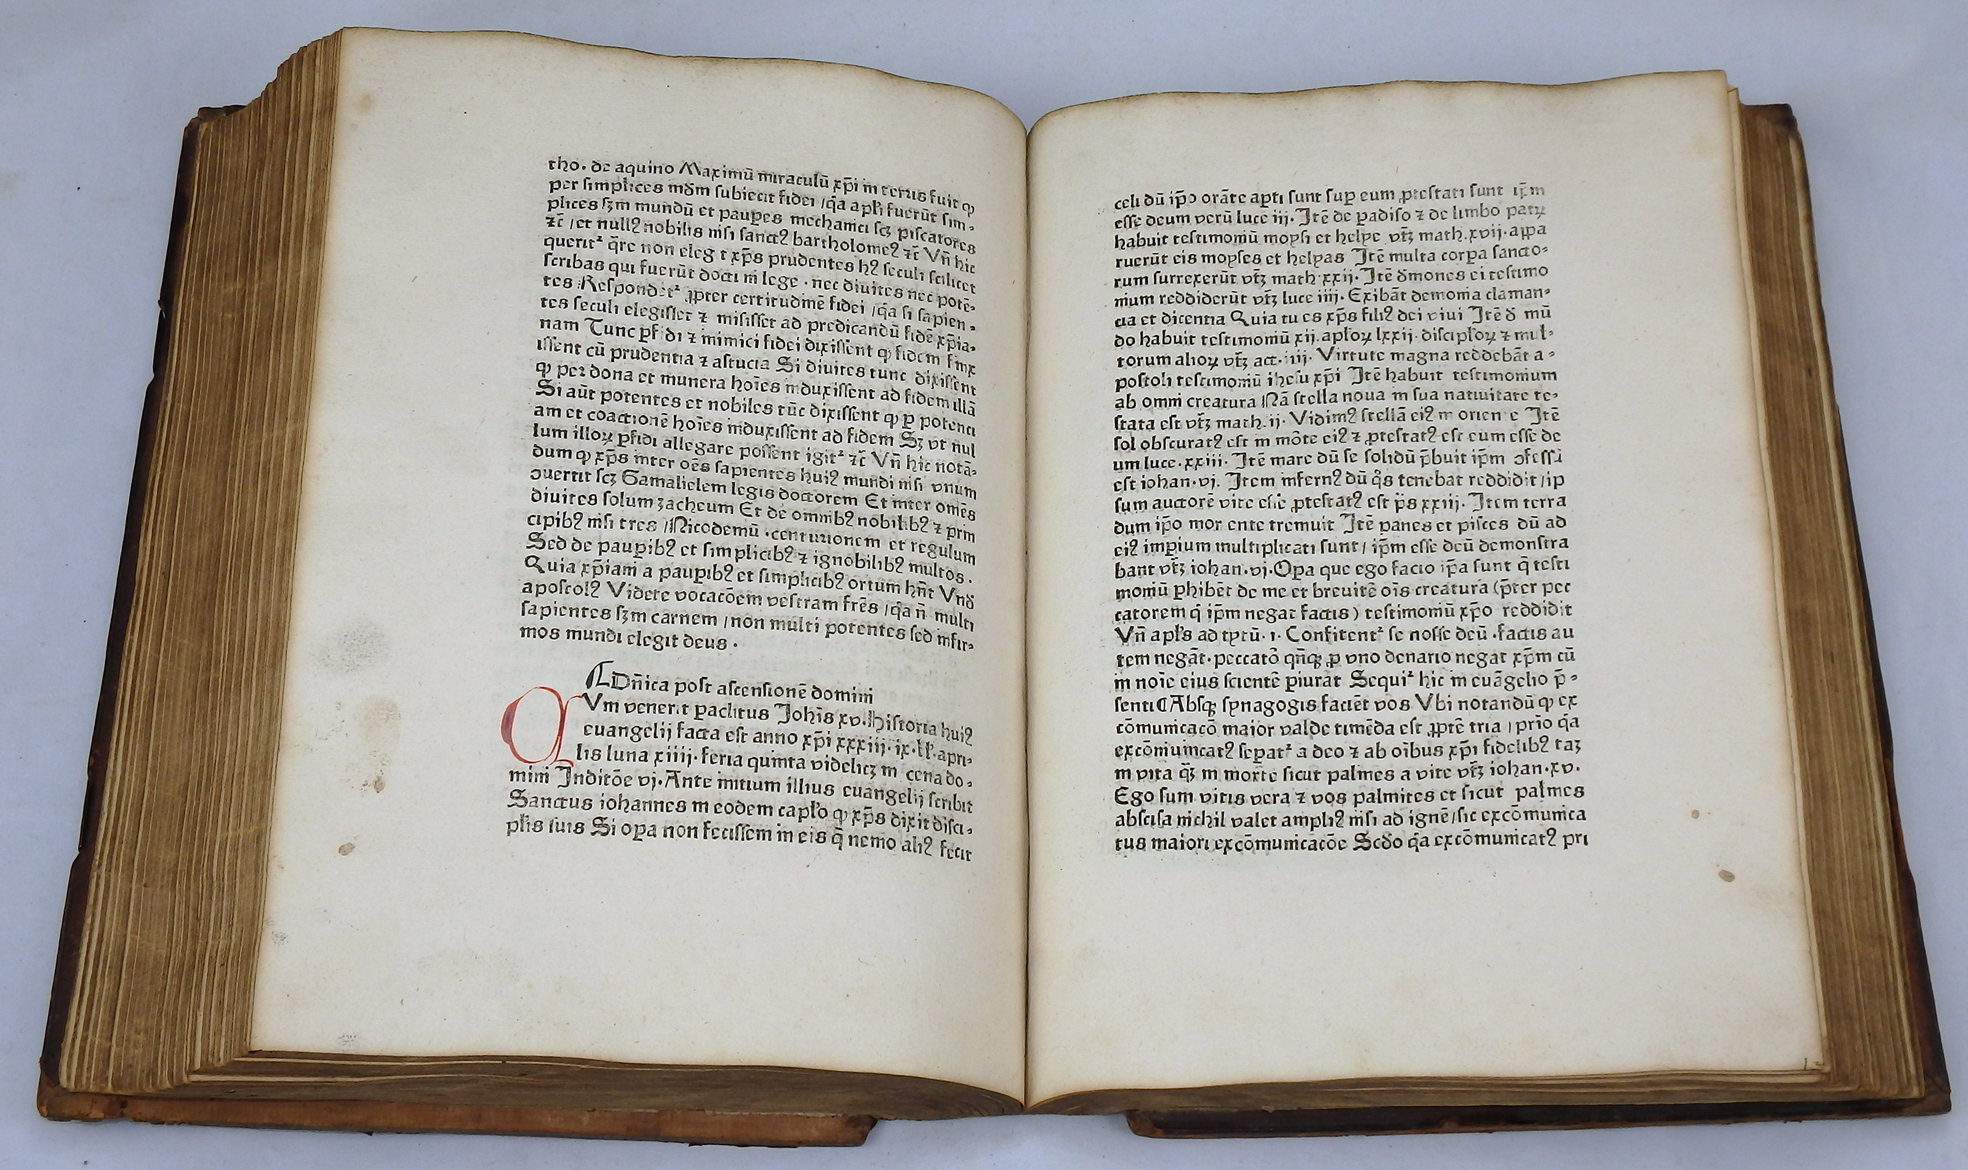 tho. de aquino Maximū miraculū xp̄i in terris fuit ꝙ
per simplices mōm subiecit fidei /q̄a apl̄i fuerūt sim⸗
plices sꝫm mundū et paupes mechanici scꝫ piscatores
ꝛc̄ /et nullꝰ nobilis nisi sanctꝰ bartholomeꝰ ꝛc̄ Vn̄ hic
querit᷑ q̄re non eleg t xp̄s prudentes hꝰ seculi scilicet
scribas qui fuerūt docti in lege . nec diuites nec potē⸗
tes Respondet᷑ ꝓpter certitudinē fidei /q̄a si sapien⸗
tes seculi elegisset ⁊ misisset ad predicandū fidē xp̄ia⸗
nam Tunc ꝑfidi ⁊ inimici fidei dixissent ꝙ fidem finx
issent cū prudentia ⁊ astucia Si diuites tunc dixissent
ꝙ per dona et munera hoīes induxissent ad fidem illā
Si aūt potentes et nobiles tūc dixissent ꝙ ꝑ potenci
am et coactionē hoīes induxissent ad fidem Sꝫ vt nul
lum illoꝝ ꝑfidi allegare possent igit᷑ ꝛc̄ Vn̄ hic notā⸗
dum ꝙ xp̄s inter oēs sapientes huiꝰ mundi nisi vnum
ꝯuertit scꝫ Gamalielem legis doctorem Et inter omēs
diuites solum zacheum Et de omnibꝰ nobilibꝰ ⁊ prin
cipibꝰ nisi tres /Nicodemū .centurionem et regulum
Sed de pauꝑibꝰ et simplicibꝰ ⁊ ignobilibꝰ multos .
Quia xp̄iani a pauꝑibꝰ et simplicibꝰ ortum hn̄t Vnd̄
apostolꝰ Videte vocacōem vestram frēs /q̄a n̄ multi
sapientes sꝫm carnem /non multi potentes sed infir⸗
mos mundi elegit deus .
¶Dn̄ica post ascensionē domini
QVm venerit ꝑaclitus Joh̄is xv.historia huiꝰ
euangelij facta est anno xp̄i xxxiij.ix.kl̄.apri⸗
lis luna xiiij.feria quinta videlicꝫ in cena do⸗
mini Inditōe vj.Ante initium illius euangelij scribit
Sanctus iohannes in eodem caplo ꝙ xp̄s dixit disci⸗
pl̄is suis Si oꝑa non fecissem in eis q̄ nemo aliꝰ fecit
celi dū ip̄o orāte apti sunt suꝑ eum ꝓtestati sunt ip̄m
esse deum verū luce iij.Itē de ꝑadiso ⁊ de limbo patꝝ
habuit testimoniū moysi et helye vt̄ꝫ math.xvij.aꝑpa
ruerūt eis moyses et helyas Itē multa corꝑa sancto⸗
rum surrexerūt vt̄ꝫ math.xxij.Itē dēmones ei testimo
nium reddiderūt vt̄ꝫ luce iiij.Exibāt demonia claman⸗
cia et dicentia Quia tu es xp̄s filiꝰ dei viui Itē d̄ mū
do habuit testimoniū xij.apl̄oꝝ lxxij.discipl̄oꝝ ⁊ mul⸗
torum alioꝝ vt̄ꝫ act.iiij.Virtute magna reddebāt a⸗
postoli testimoniū ihesu xp̄i Itē habuit testimonium
ab omni creatura Nā stella noua in sua natiuitate te⸗
stata est vt̄ꝫ math.ij.Vidimꝰ stellā eiꝰ in orien e Itē
sol obscuratꝰ est in mōte eiꝰ ⁊ ꝓtestatꝰ est eum esse de
um luce.xxiij.Itē mare dū se solidū p̄buit ip̄m ꝯfessū
est iohan.vj.Item infernꝰ dū q̄s tenebat reddidit /ip
sum auctorē vite esse ꝓtestatꝰ est p̄s xxiij.Item terra
dum ip̄o mor ente tremuit Itē panes et pisces dū ad
eiꝰ imꝑium multiplicati sunt / ip̄m esse deū demonstra
bant vt̄ꝫ iohan.vj.Oꝑa que ego facio ip̄a sunt q̄ testi
moniū ꝑhibēt de me et breuitē oīs creatura (p̄ter pec
catorem q̄ ip̄m negat factis) testimoniū xp̄o reddidit
Vn̄ apl̄s ad tytū.1.Confitent᷑ se nosse deū .factis au
tem negāt.peccatō qn̄qꝫ ꝓ vno denario negat xp̄m cū
in noīe eius scientē ꝑiurat Sequi᷑ hic in euāgelio p̄⸗
senti¶Absqꝫ synagogis faciēt vos Vbi notandū ꝙ ex
cōmunicacō maior valde timēda est ꝓptē tria / prīo q̄a
excōmunicatꝰ seꝑat᷑ a deo ⁊ ab oībus xp̄i fidelibꝰ taꝫ
in vita q̄ꝫ in morte sicut palmes a vite vt̄ꝫ iohan.xv.
Ego sum vitis vera ⁊ vos palmites et sicut palmes
abscisa nichil valet ampliꝰ nisi ad ignē/sic excōmunica
tus maiori excōmunicacōe Scd̄o q̄a excōmunicatꝰ pri